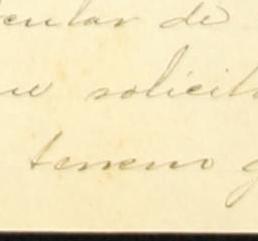 cular de
solicit
terreno